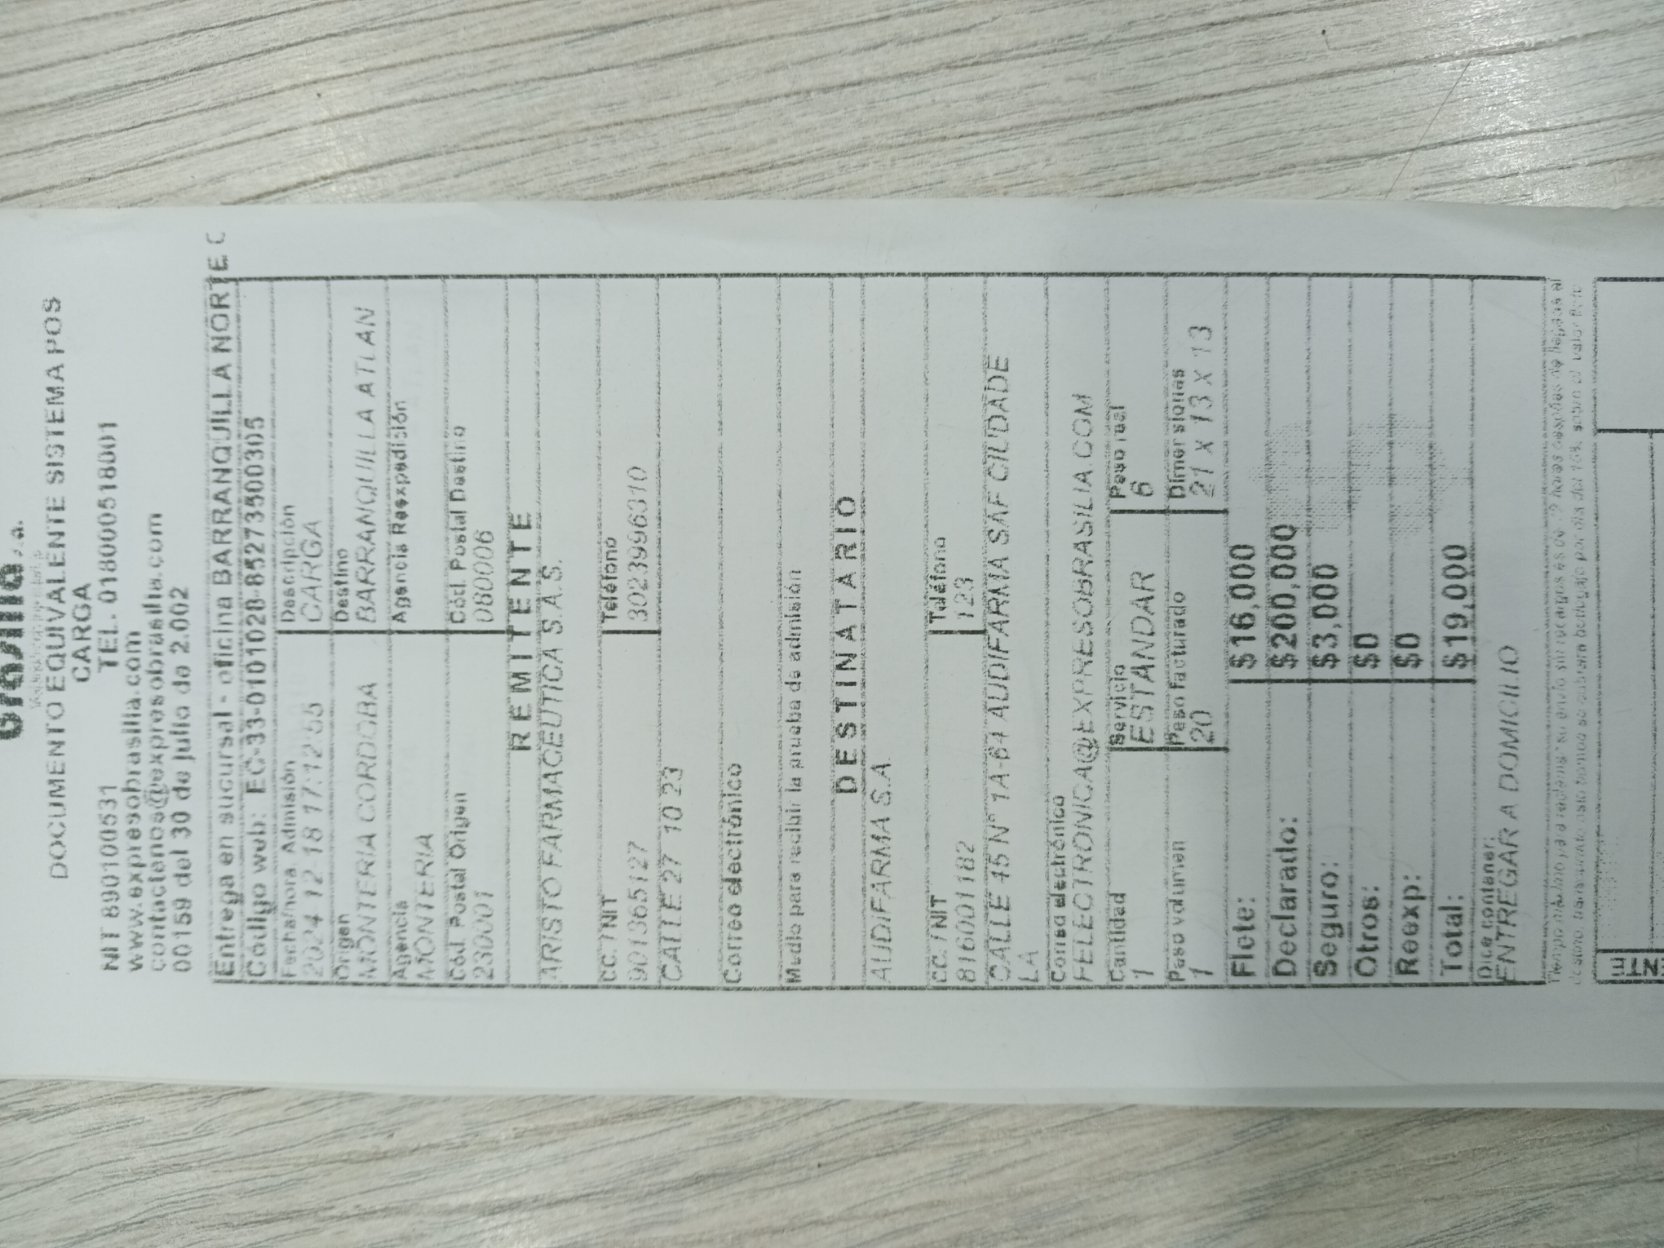 Brasilia s.a.
DOCUMENTO EQUIVALENTE SISTEMA POS
CARGA
NIT 890100531 TEL. 018000518001
www.expresobrasilia.com
contactenos@expresobrasilia.com
00159 del 30 de julio de 2.002
Entrega en sucursal - oficina BARRANQUILLA NORTE C
Código web: EC-33-0101028-85273500305
Fecha/hora Admisión Descripción
2024-12-18 17:12:55 CARGA
Origen Destino
MONTERIA CORDOBA BARRANQUILLA ATLAN
Agencia Agencia Reexpedición
MONTERIA
Cód. Postal Origen Cód. Postal Destino
230001 080006
REMITENTE
ARISTO FARMACEUTICA S.A.S.
CC. / NIT Teléfono
901365127 3023996310
CALLE 27 10 23
Correo electrónico
Medio para recibir la prueba de admisión
DESTINATARIO
AUDIFARMA S.A.
CC. / NIT Teléfono
816001182 123
CALLE 45 N° 1A-64 AUDIFARMA SAF CIUDADE
LA
Correo electrónico
FELECTRONICA@EXPRESOBRASILIA.COM
Cantidad Servicio Peso real
1 ESTANDAR 6
Peso volumen Peso facturado Dimensiones
1 20 21 X 13 X 13
Flete: $16,000
Declarado: $200,000
Seguro: $3,000
Otros: $0
Reexp: $0
Total: $19,000
Dice contener:
ENTREGAR A DOMICILIO